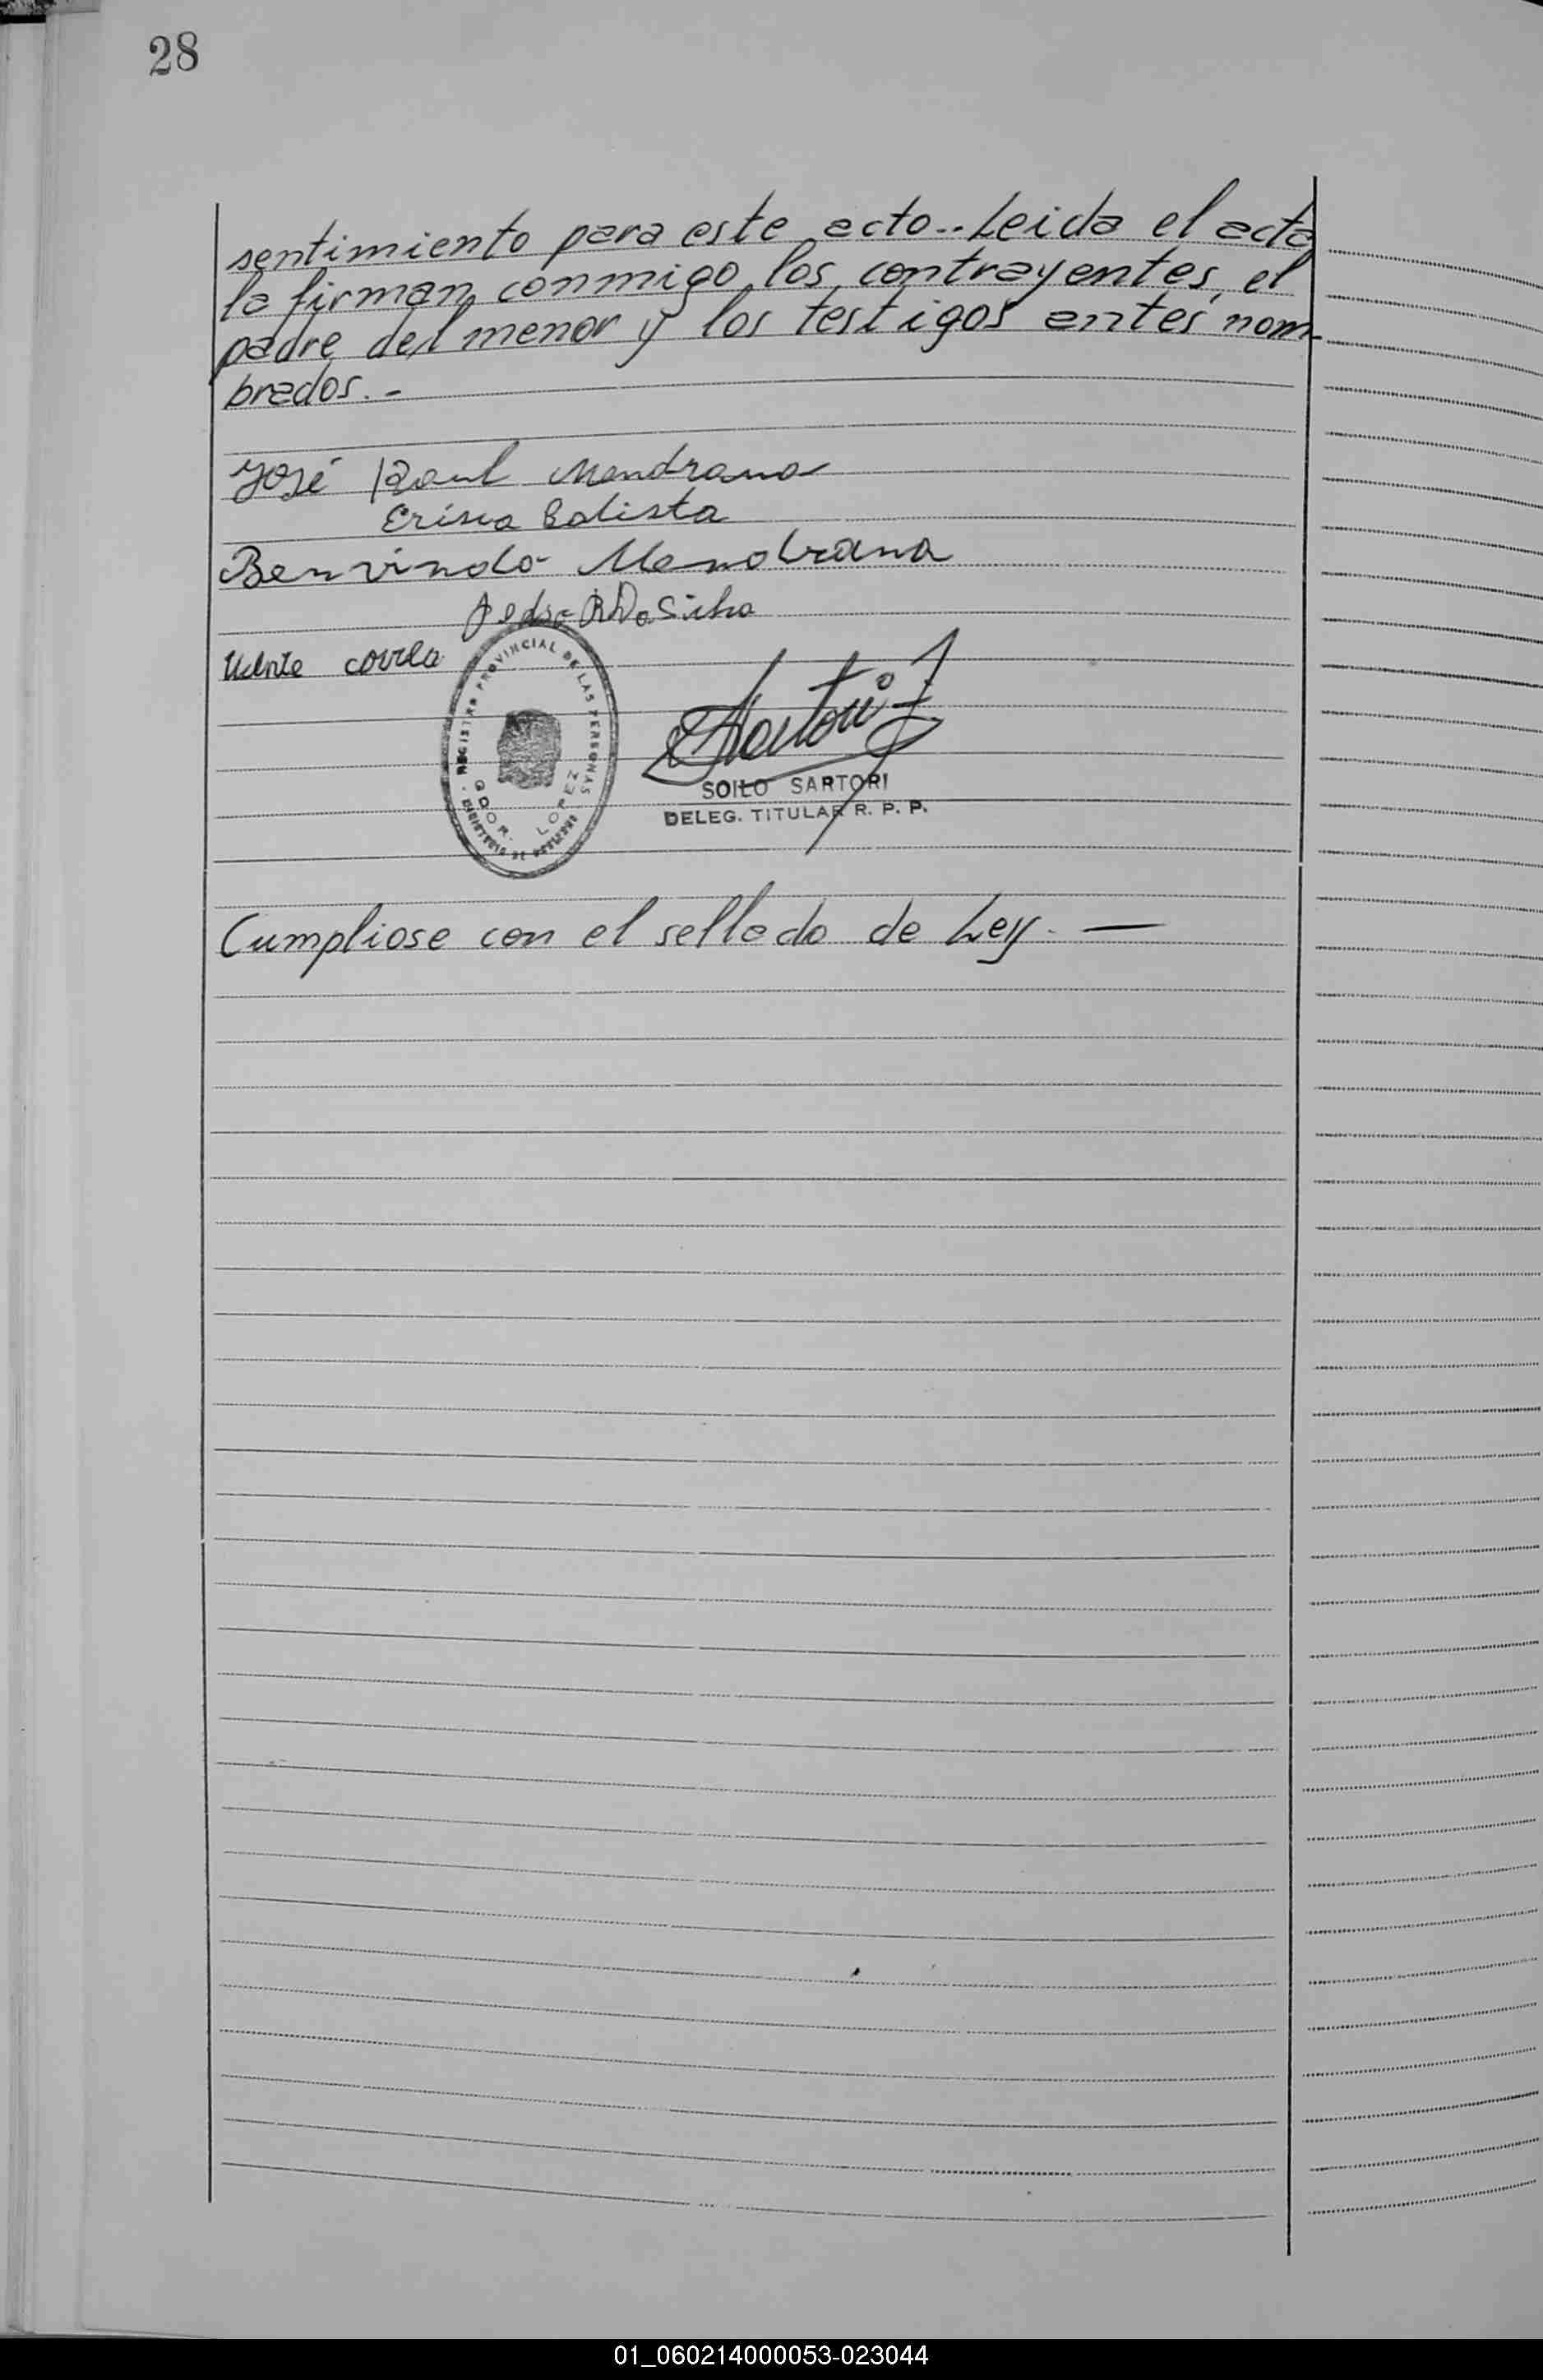 28
sentimiento para este acto.. Leida el acta
la firman conmigo los contrayentes, el
padre del menor y los testigos antes nom-
brados.-
José Raul Mendrano
Batista
Benvindo Mendrana
Pedro R Da Silva
correa
REGISTRO PROVINCIAL DE LAS PERSONAS
GDOR. LOPEZ
MINISTERIO DE GOBIERNO
Sartori
SOILO SARTORI
DELEG. TITULAR R. P. P.
Cumpliose con el sellado de Ley. —
01_060214000053-023044